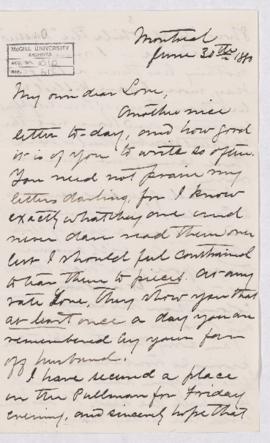 McGILL UNIVERSITY
ARCHIVES
ACC. NO.
REF.
Montreal
June 30th
My own dear Love,
Another nice
letter to day, and how good
it is of you to write so often.
You need not praise my
letters darling, for I know
exactly what they are and
never dare read them over
lest I should feel constrained
to tear them to pieces. At any
rate Love, they show you that
at least once a day you are
remembered by your
husband.
I have secured a place
on the Pullman for Friday
evening, and sincerely hope that